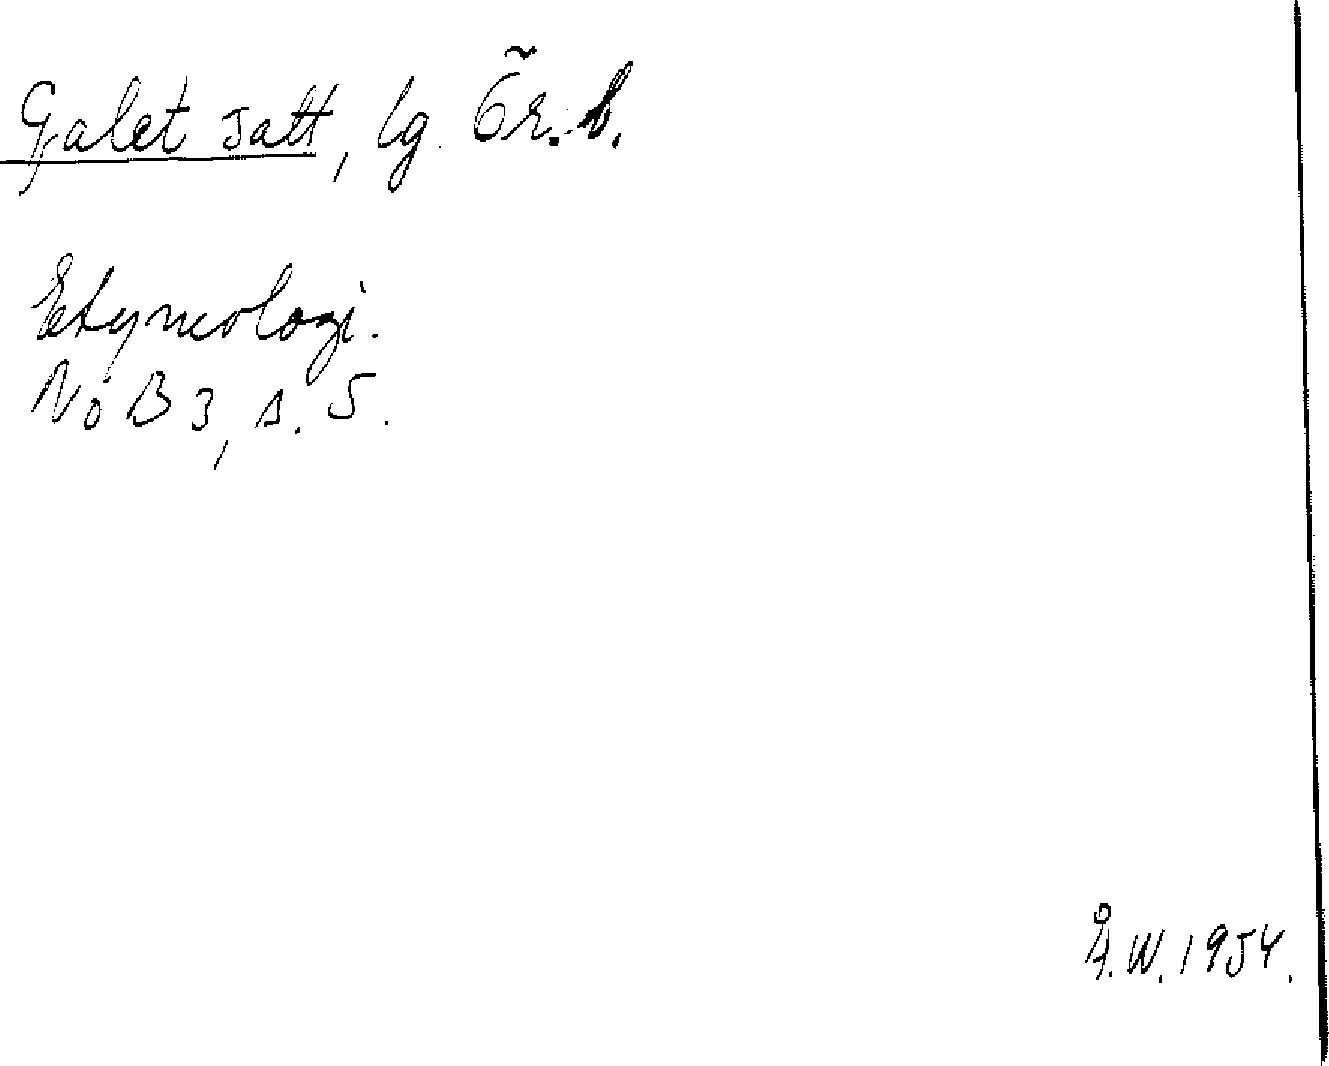 Galet Jatt, lg. Ör. b.
Etymologi.
NoB 3, s. 5.
Å.W. 1954.